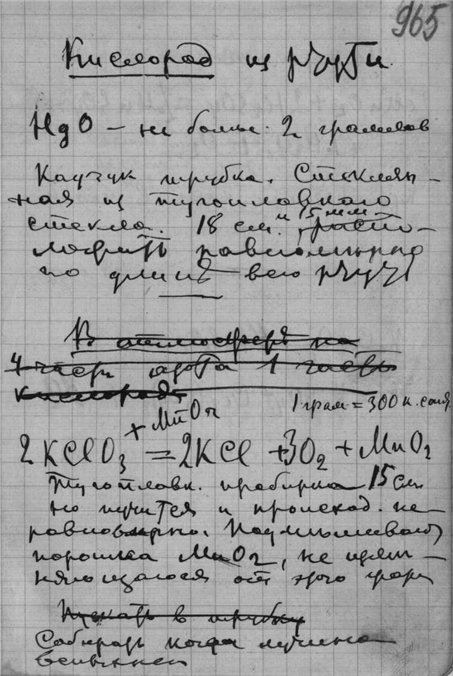 965
Кислород из ртути.
HgO — не более 2 граммов
Каучук трубка. Стеклян-
ная из тугоплавкого
стекла. 18 см. и 15 мм. Распо-
ложить равномерно
по длинѣ всю ртуть
В атмосферѣ на
4 части азота 1 часть
кислорода
1 грам = 300 к. сант.
+ MnO2
2KClO3 = 2KCl + 3O2 + MnO2
Тугоплавк. пробирка 15 см
но пучится и происход. не-
равномерно. Подмешивают
порошка MnO2, не измѣ-
няющагося от этого
Пускать в трубку
Собирать когда лучина
вспыхнет